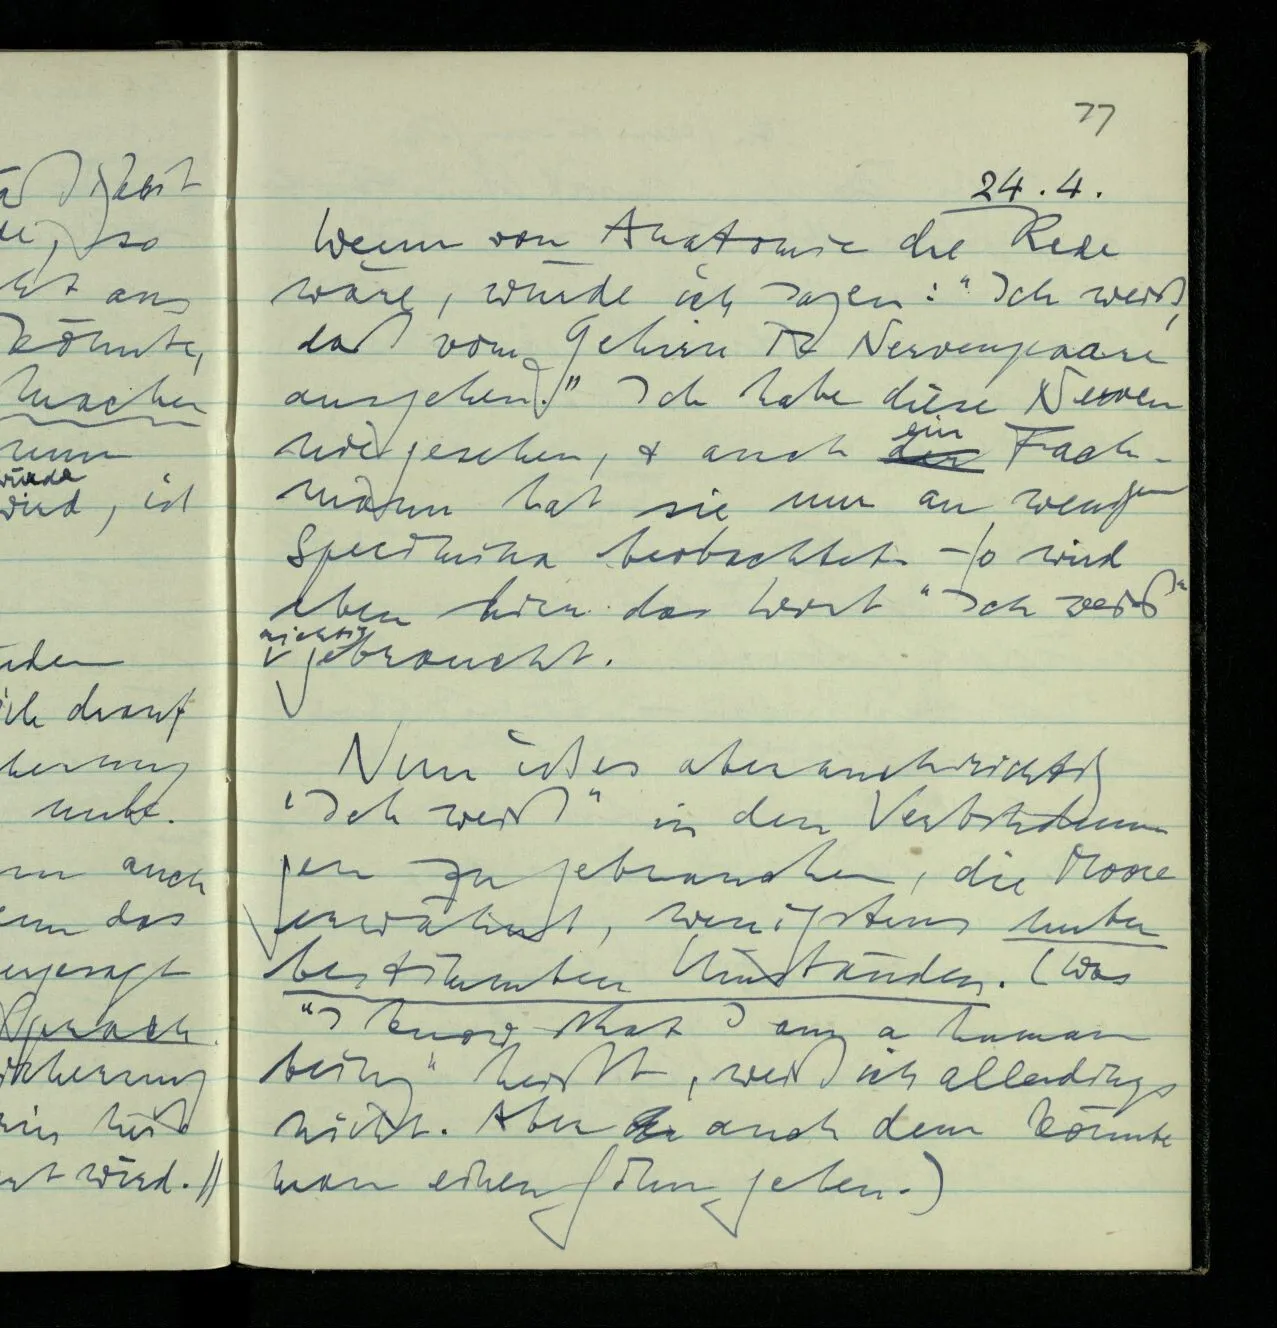 so
könnte,
machen
würde
wird, ist
drauf
auch
das
Sprach
wird. //
77
24.4.
Wenn von Anatomie die Rede
wäre, würde ich sagen: "Ich weiß,
daß vom Gehirn 12 Nervenpaare
ausgehen." Ich habe diese Nerven
nie gesehen, & auch ein Fach-
mann hat sie nur an wenigen
Specimina beobachtet. – So wird
eben hier das Wort "Ich weiß"
richtig gebraucht.
Nun ist es aber auch richtig
"Ich weiß" in den Verbindun
gen zu gebrauchen, die Moore
erwähnt, wenigstens unter
bestimmten Umständen. (Was
"I know that I am a human
being" heißt, weiß ich allerdings
nicht. Aber auch dem könnte
man einen Sinn geben.)